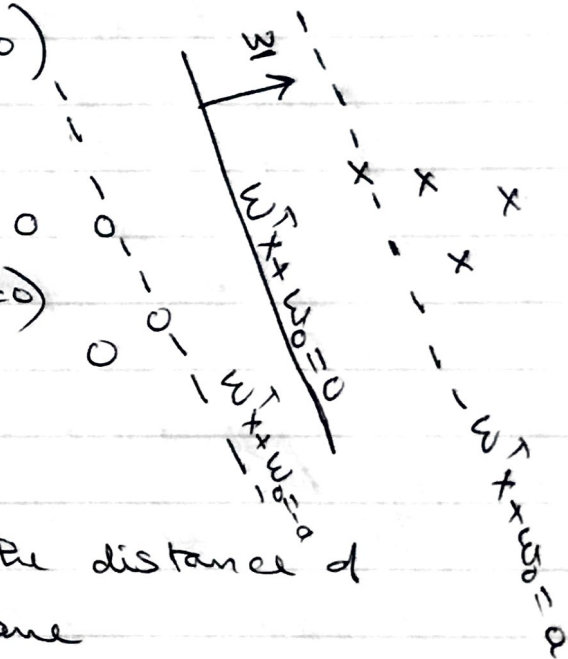 o)
w
w^T x + w_0 = 0
=0)
w^T x + w_0 = -a
w^T x + w_0 = a
the distance of
ane